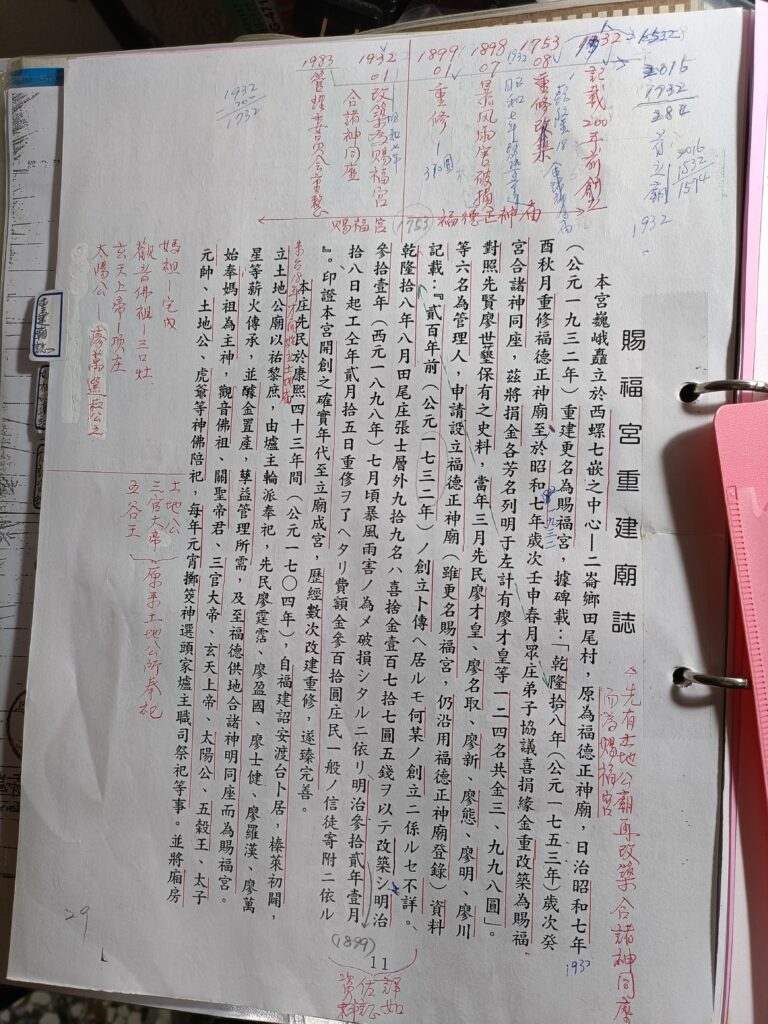 賜福宮重建廟誌
本宮巍峨矗立於西螺七嵌之中心—二崙鄉田尾村，原為福德正神廟，日治昭和七年
（公元一九三二年）重建更名為賜福宮，據碑載：「乾隆拾八年（公元一七五三年）歲次癸
酉秋月重修福德正神廟至於昭和七年歲次壬申春月眾庄弟子協議喜捐緣金重改築為賜福
宮合諸神同座，茲將捐金各芳名列明于左計有廖才皇等一二四名共金三、九九八圓」。
對照先賢廖世墾保有之史料，當年三月先民廖才皇、廖名取、廖新、廖態、廖明、廖川
等六名為管理人，申請設立福德正神廟（雖更名賜福宮，仍沿用福德正神廟登錄）資料
記載：『貳百年前（公元一七三二年）ノ創立ト傳ヘ居ルモ何某ノ創立ニ係ルセ不詳。
乾隆拾八年八月田尾庄張士層外九拾九名ハ喜捨金壹百七拾七圓五錢ヲ以テ改築シ明治
參拾壹年（西元一八九八年）七月頃暴風雨害ノ為メ破損シタルニ依リ明治參拾貳年壹月
拾八日起工仝年貳月拾五日重修ヲ了ヘタリ費額金參百拾圓庄民一般ノ信徒寄附ニ依ル
』。印證本宮開創之確實年代至立廟成宮，歷經數次改建重修，遂臻完善。
本庄先民於康熙四十三年間（公元一七〇四年），自福建詔安渡台卜居，榛萊初闢，
立土地公廟以祐黎庶，由爐主輪派奉祀，先民廖霆霑、廖盈國、廖士健、廖羅漢、廖萬
星等薪火傳承，並醵金置產，孳益管理所需，及至福德供地合諸神明同座而為賜福宮。
始奉媽祖為主神，觀音佛祖、關聖帝君、三官大帝、玄天上帝、太陽公、五穀王、太子
元帥、土地公、虎爺等神佛陪祀，每年元宵擲筊神選頭家爐主職司祭祀等事。並將廂房
11
29
1932
記載200年前創立
1753
08
重修改築
1898
07
暴風雨害破損
1899
01
重修
310圓
1932
01
改築為賜福宮
合諸神同座
昭和七年
1983
管理委員會重整
賜福宮
(1753)
福德正神廟
1932
1732
2016
1932
1932
先有土地公廟再改築合諸神同座
而為賜福宮
1932
(1899)
詳如
佐証
資料
媽祖—宅內
觀音佛祖—三口灶
玄天上帝—頂庄
太陽公—廖萬
土地公
三官大帝
五谷王
原系土地公所奉祀
重建廟誌